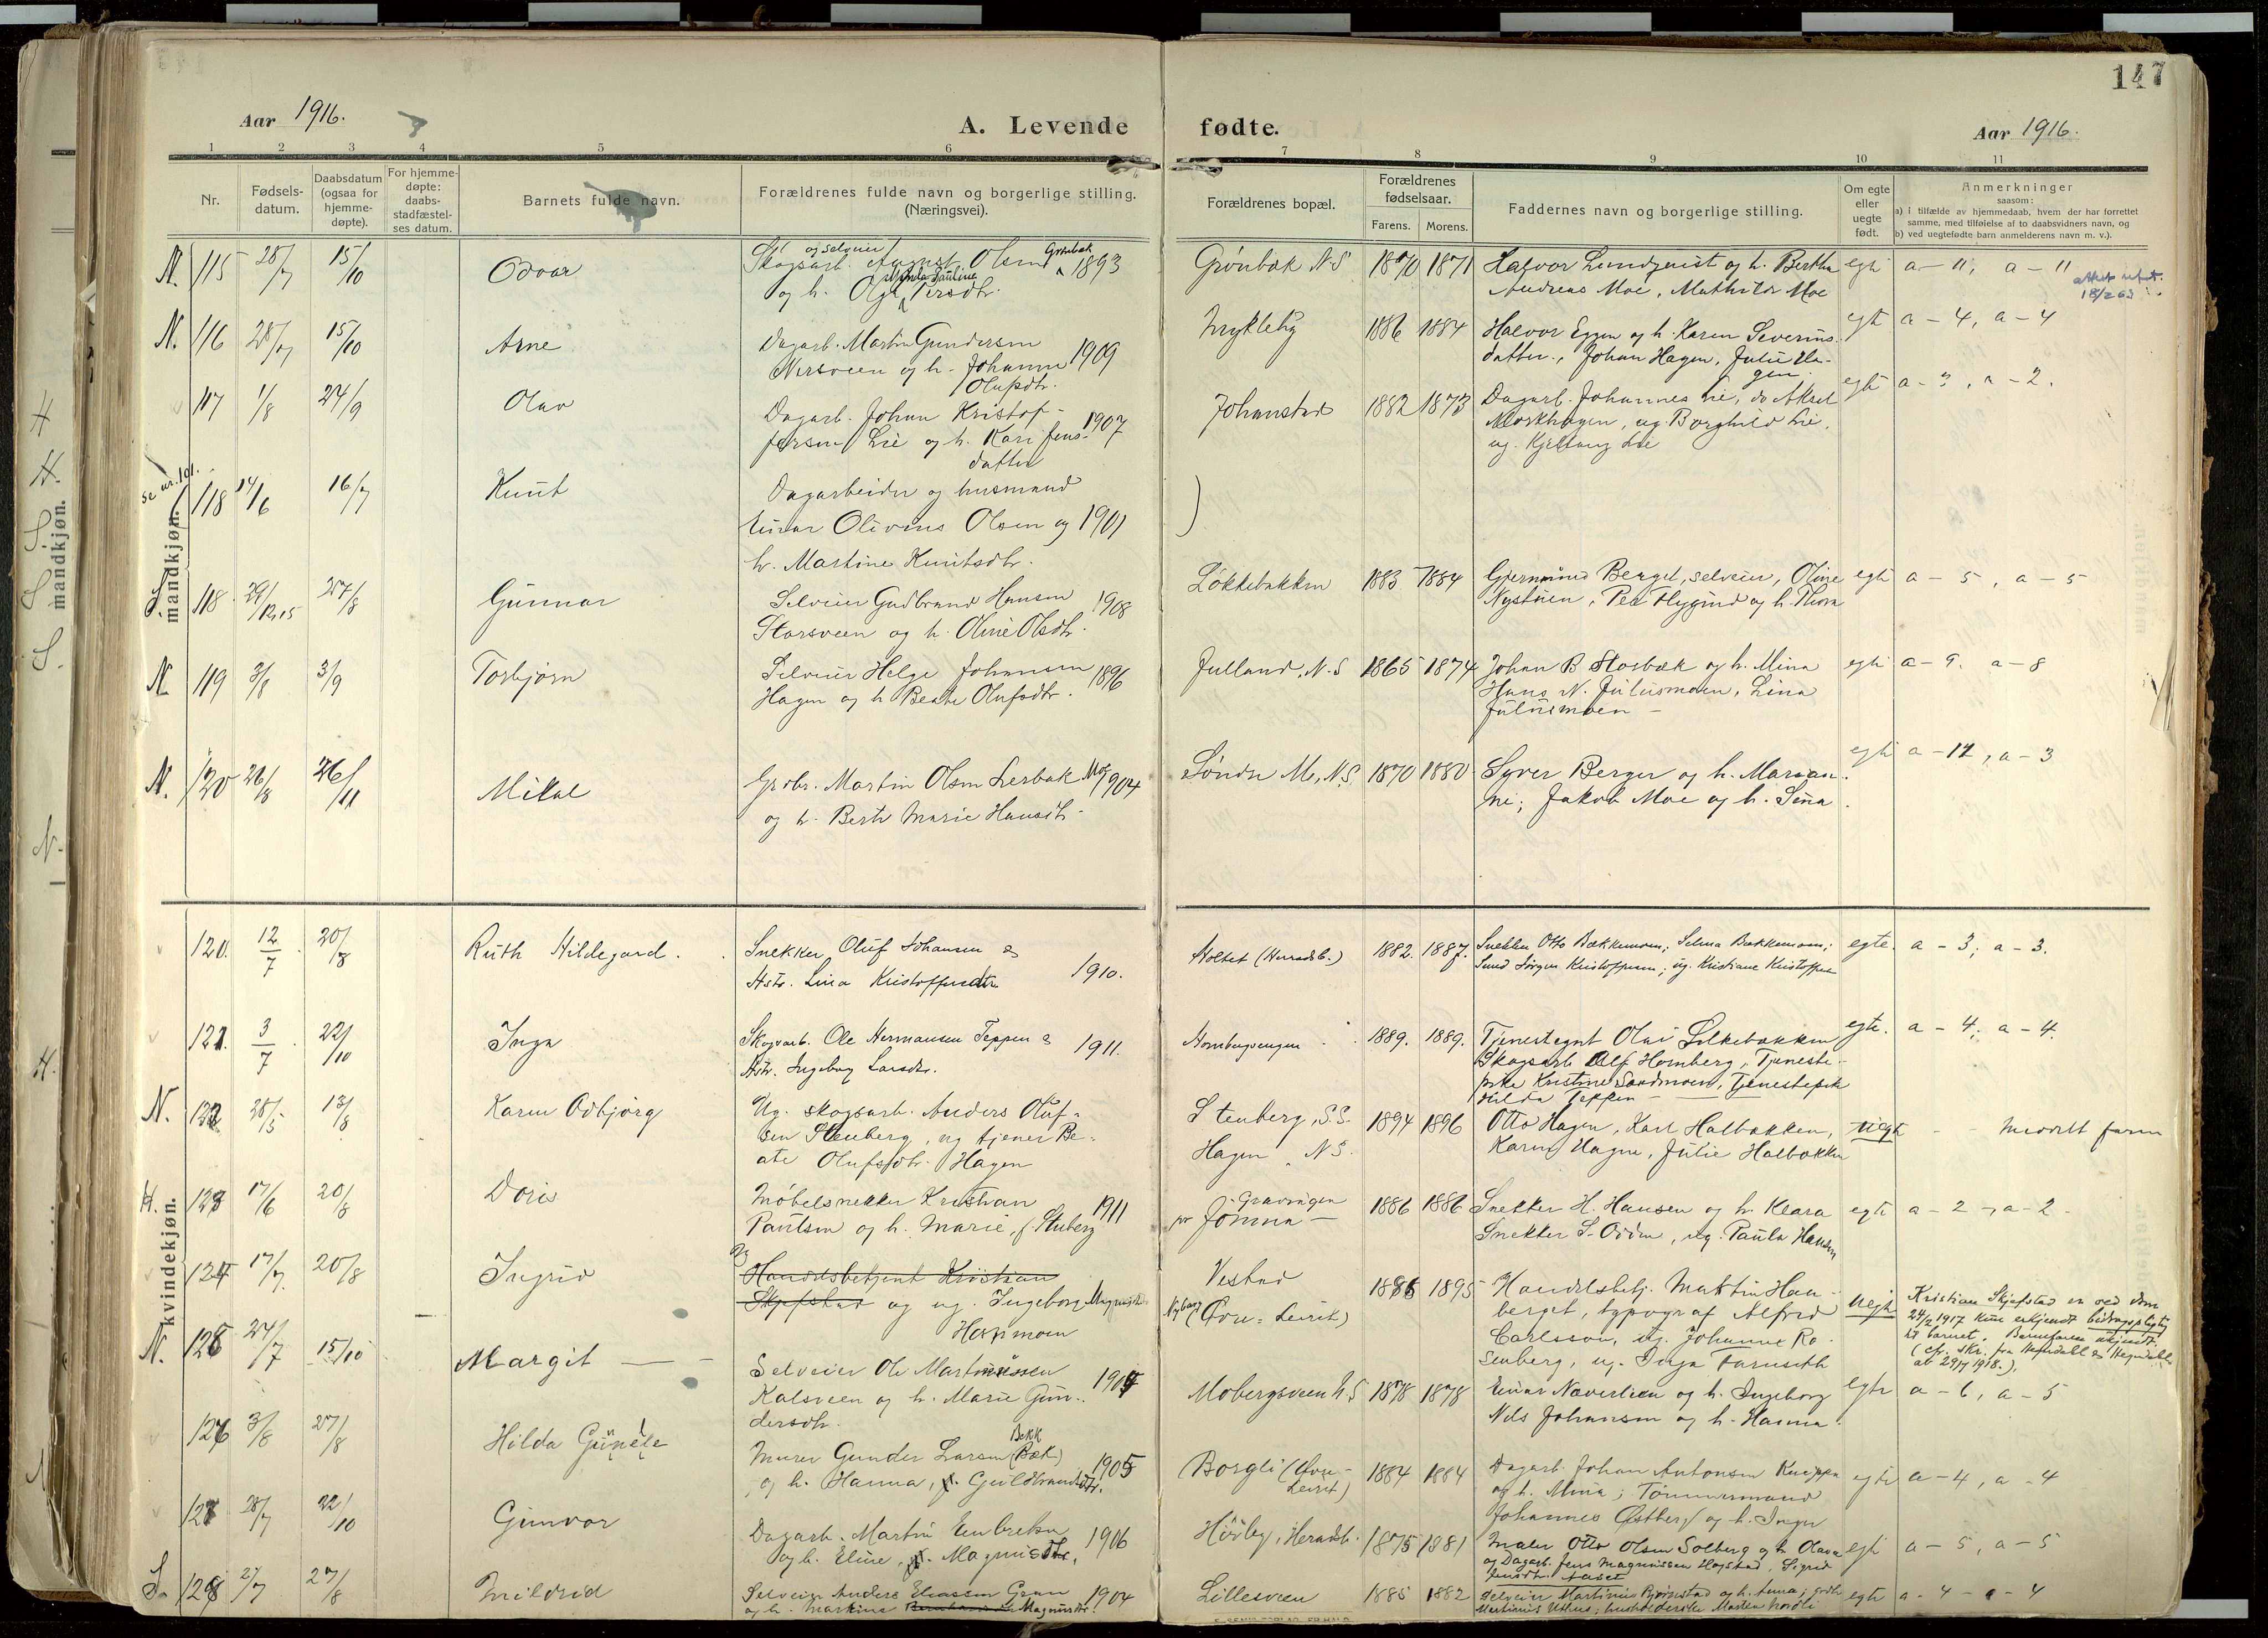 147
Aar 1916.
A. Levende fødte.
Aar 1916.
1 2 3 4 5 6 7 8 9 10 11
Nr.
Fødsels-
datum.
Daabsdatum
(ogsaa for
hjemme-
døpte).
For hjemme-
døpte:
daabs-
stadfæstel-
ses datum.
Barnets fulde navn.
Forældrenes fulde navn og borgerlige stilling.
(Næringsvei).
Forældrenes bopæl.
Forældrenes
fødselsaar.
Farens. Morens.
Faddernes navn og borgerlige stilling.
Om egte
eller
uegte
født.
Anmerkninger
saasom:
a) i tilfælde av hjemmedaab, hvem der har forrettet
samme, med tilføielse af to daabsvidners navn, og
b) ved uegtefødte barn anmelderens navn m. v.).
mandkjøn.
N. 115 28/7 15/10 Odvar
Skogsarb. og selveier August Olsen Grønbæk 1893
og h. Olga Persdtr.
Grønbæk N.S 1870 1871
Halvor Lundquist og h. Bertha
Andreas Moe, Mathilde Moe
egte a – 11, a – 11
18/2 63
N. 116 28/7 15/10 Arne
Dagarb. Martin Gundersen
Nersveen og h. Johanne 1909
Olufsdtr.
Mykleby 1886 1884
Halvor Eggen og h. Karen Severins-
datter, Johan Hagen, Julie Ha-
gen.
egte a – 4, a – 4
117 1/8 24/9 Olav
Dagarb. Johan Kristof-
fersen Lie og h. Kari Jens- 1907
datter
Johanstad 1882 1873
Dagarb. Johannes Lie, do Aksel
Morkhagen, ug. Borghild Lie,
ug. Kjellaug Lie
egte a – 3, a – 2.
se nr. 101.
118 14/6 16/7 Knut
Dagarbeider og husmand
Einar Olivius Olsen og 1901
h. Martine Knutsdtr.
S. 118 29/12 15 27/8 Gunnar
Selveier Gudbrand Hansen 1908
Storsveen og h. Oline Olsdtr.
Løkkebakken 1883 1884
Gjermund Berget, selveier, Oline
Nystuen, Peder Flygind og h. Thora
egte a – 5, a – 5
N. 119 3/8 3/9 Torbjørn
Selveier Helge Johansen 1896
Hagen og h. Beate Olufsdtr.
Julland, N.S 1865 1874
Johan B Storbæk og h. Mina
Hans N. Julusmoen, Lina
Julusmoen –
egte a – 9. a – 8
N. 120 26/8 26/11 Mikal
Grdbr. Martin Olsen Lerbak Moe 1904
og h. Berte Marie Hansdtr.
Søndre Mo, N.S. 1870 1880
Syver Berger og h. Marian-
ne; Jakob Moe og h. Sina.
egte a – 12, a – 3
kvindekjøn.
120. 12/7 20/8 Ruth Hildegard.
Snekker Oluf Johansen &
Hstr. Lina Kristoffersdtr. 1910.
Holtet (Herradsb.) 1882. 1887.
Snekker Otto Bækkemoen; Selma Bækkemoen;
Smed Jørgen Kristoffersen; ug. Kristiane Kristoffersen
egte. a – 3; a – 3.
121. 3/7 22/10 Inga
Skogsarb. Ole Hermansen Teppen & 1911.
Hstr. Ingeborg Larsdtr.
Hornbergvangen 1889. 1889.
Tjenestegut Olav Løkkebakken
Skogsarb Alf Hornberg, Tjeneste-
pike Kristine Sandmoen, Tjenestepike
Hilda Teppen –
egte. a – 4; a – 4.
N. 122 28/5 13/8 Karen Odbjørg
Ug. skogsarb. Anders Oluf-
sen Stenberg, ug tjener Be-
ate Olufsdtr. Hagen
Stenberg, S.S.
Hagen N.S.
1894 1896
Otto Hagen, Karl Halbakken,
Karen Hagen, Julie Halbakken
uegte – – meddelt faren
H. 123 17/6 20/8 Doris
Møbelsnekker Kristian
Paulsen og h. Marie, f. Stuberg 1911
Gravningen
pr Jømna – 1886 1886
Snekker H. Hansen og h. Klara
Snekker S. Odden, ug. Paula Hansen
egte a – 2 –, a – 2
124 17/7 20/8 Ingrid
Ug Handelsbetjent Kristian
Skjefstad og ug. Ingeborg Magnusdtr.
Hornmoen
Vestad
Nyborg (Øvre-Leiret) 1886 1895
Handelsbetj. Martin Han-
berget, typograf Alfred
Carlsson, ug. Johanne Ro-
senberg, ug. Inga Faruseth
uegte
Kristian Skjefstad er ved dom
24/2 1917 kun erkjendt bidragspligtig
til barnet. Barnefaren ukjendt.
(cfr. skr. fra
av 29/7 1918.).
N. 125 24/7 15/10 Margit –
Selveier Ole Martinsen 1904
Kalsveen og h. Marie Gun-
dersdtr.
Mobergsveen N.S 1878 1878
Einar Naverlien og h. Ingeborg
Nils Johansen og h. Hanna.
egte a – 6, a – 5
126 3/8 27/8 Hilda Gunelle
Murer Gunder Larsen (Bæk) Bekk 1905
og h. Hanna, f. Guldbrandsdtr.
Borgli (Øvre-
Leiret) 1884 1884
Dagarb. Johan Antonsen Knippen
og h. Mina; Tømmermand
Johannes Østberg og h. Inger
egte a – 4, a – 4
127 28/7 22/10 Gunvor
Dagarb. Martin Embretsen 1906
og h. Eline, f. Magnusdtr.
Høiby, Heradsb. 1875 1881
Maler Otto Olsen Solberg og h. Olava
og Dagarb. Jens Magnussen Hogstad, Sigrid
Jensdtr. Aaset
egte a – 5, a – 5
S. 128 27/7 27/8 Mildrid
Selveier Anders Eliassen Gran 1904
og h. Martine Bernhardsdtr Magnusdtr.
Lillesveen 1885 1882
Selveier Martinius Bjørnstad og h. Anna; grdbr.
Martinius Uthus; husholderske Marten Nordli
egte a – 4 – a – 4